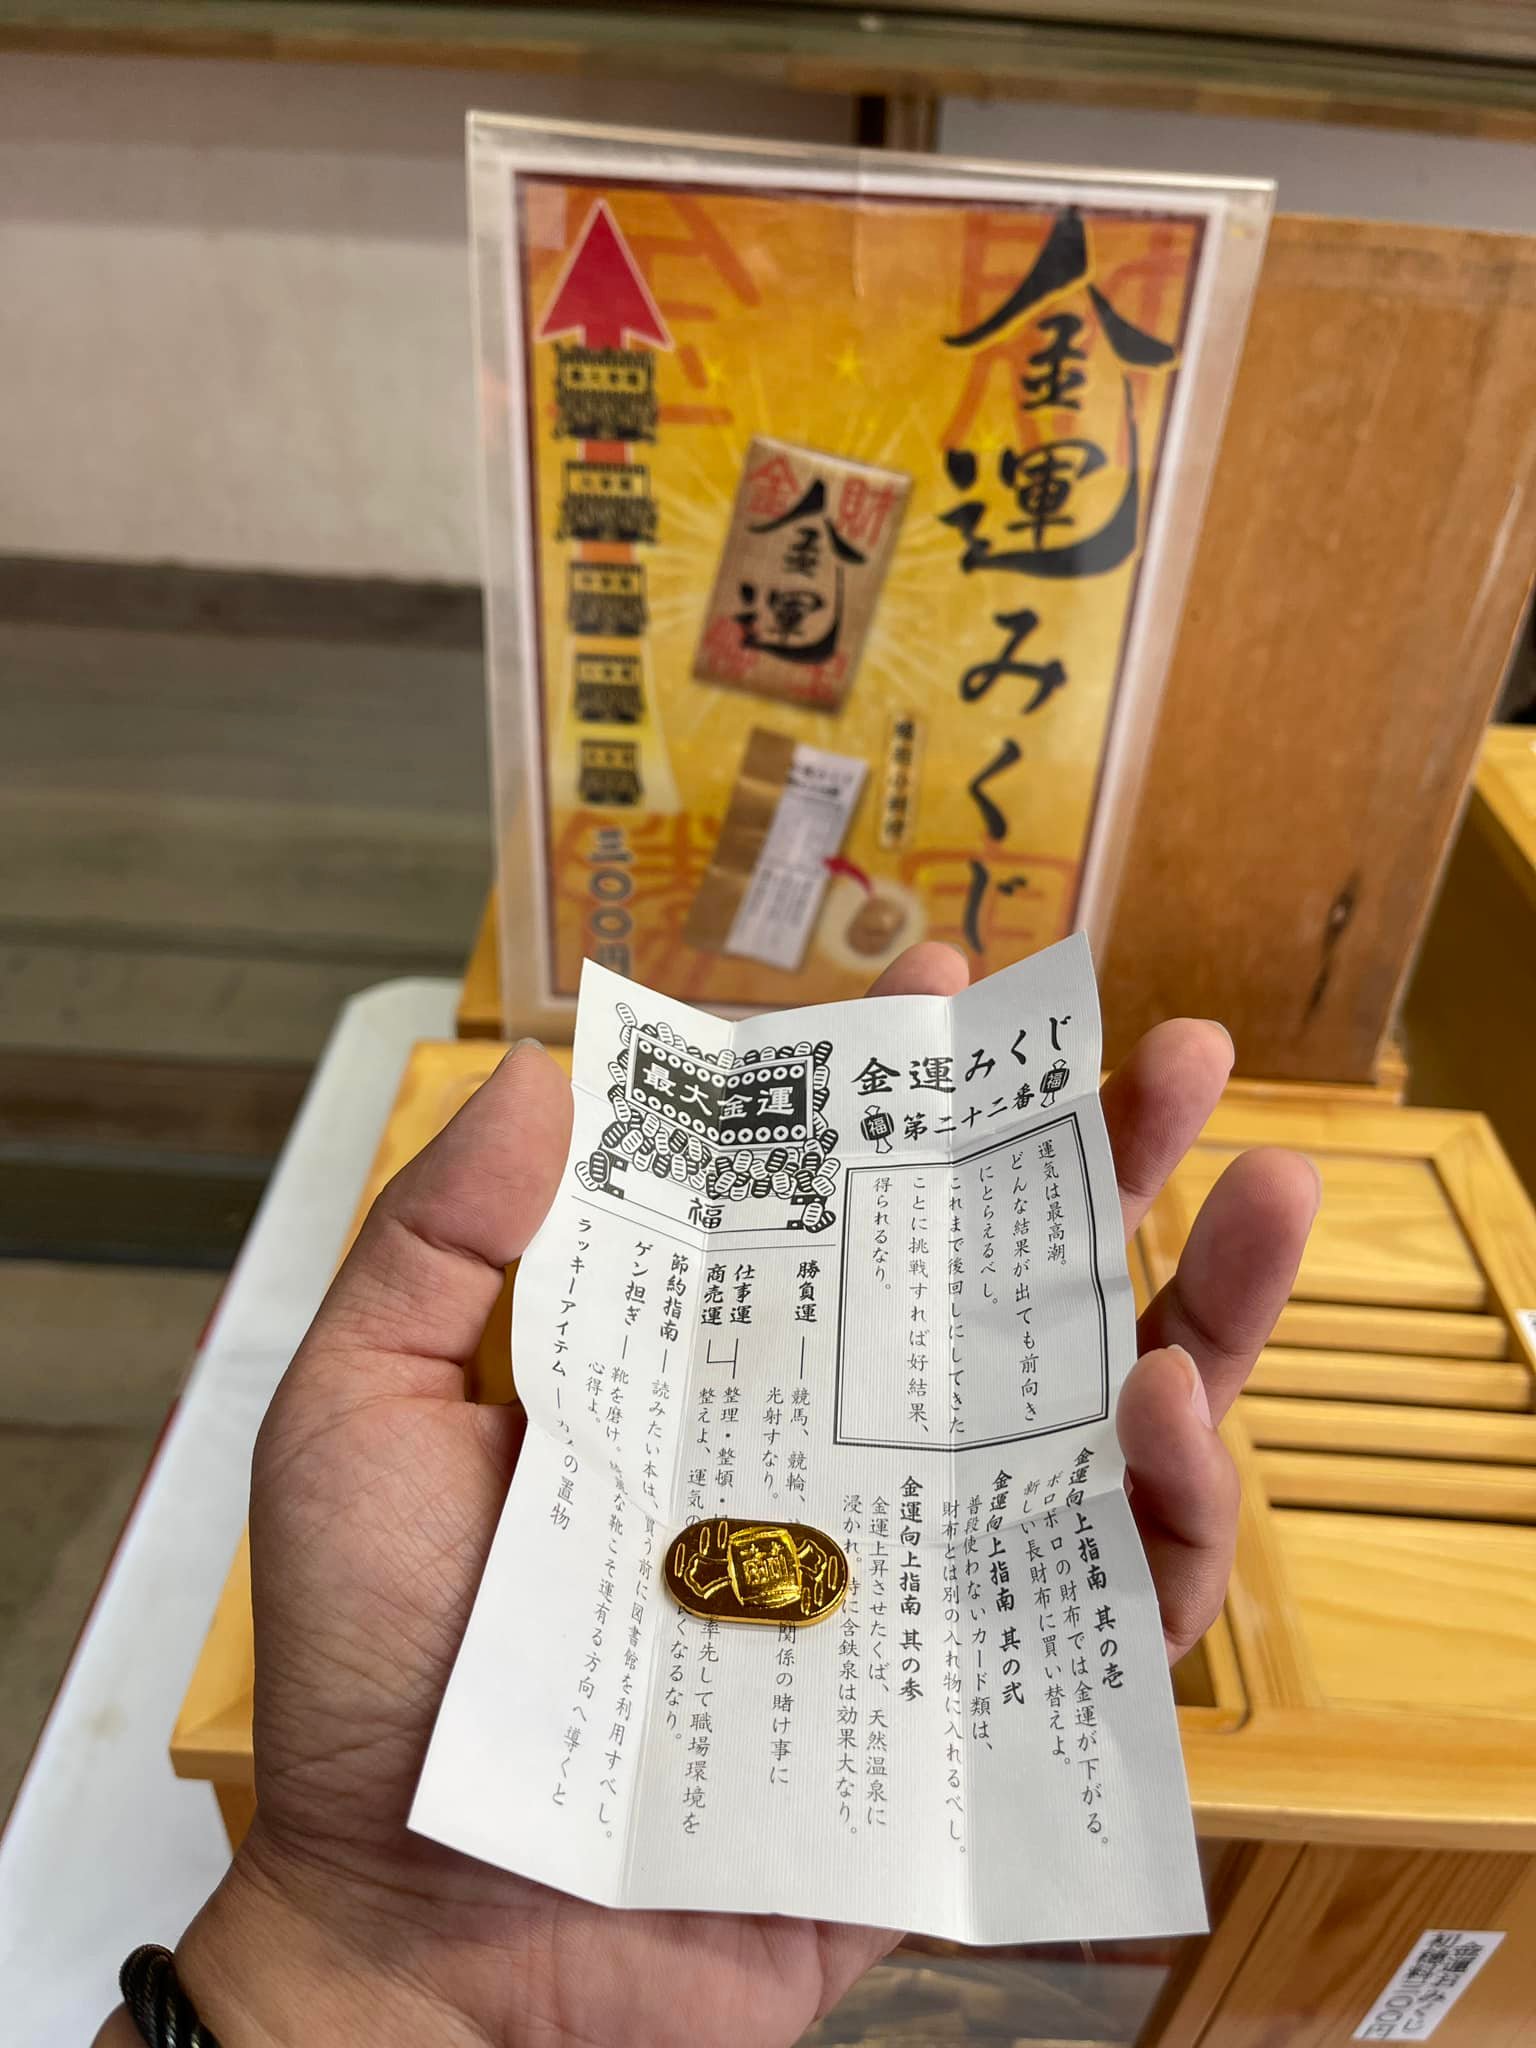 金運みくじ
金 財
金運
三〇〇円
金運みくじ
福 第二十二番 福
最大金運
福
運気は最高潮。
どんな結果が出ても前向き
にとらえるべし。
これまで後回しにしてきた
ことに挑戦すれば好結果、
得られるなり。
金運向上指南 其の壱
ボロボロの財布では金運が下がる。
新しい長財布に買い替えよ。
金運向上指南 其の弐
普段使わないカード類は、
財布とは別の入れ物に入れるべし。
金運向上指南 其の参
金運上昇させたくば、天然温泉に
浸かれ。特に含鉄泉は効果大なり。
勝負運
競馬、競輪、
関係の賭け事に
光射すなり。
仕事運
商売運
整理・整頓・
率先して職場環境を
整えよ、運気の
良くなるなり。
節約指南
読みたい本は、買う前に図書館を利用すべし。
ゲン担ぎ
靴を磨け。綺麗な靴こそ運有る方向へ導くと
心得よ。
ラッキーアイテム
の置物
金運おみくじ
初穂料三〇〇円